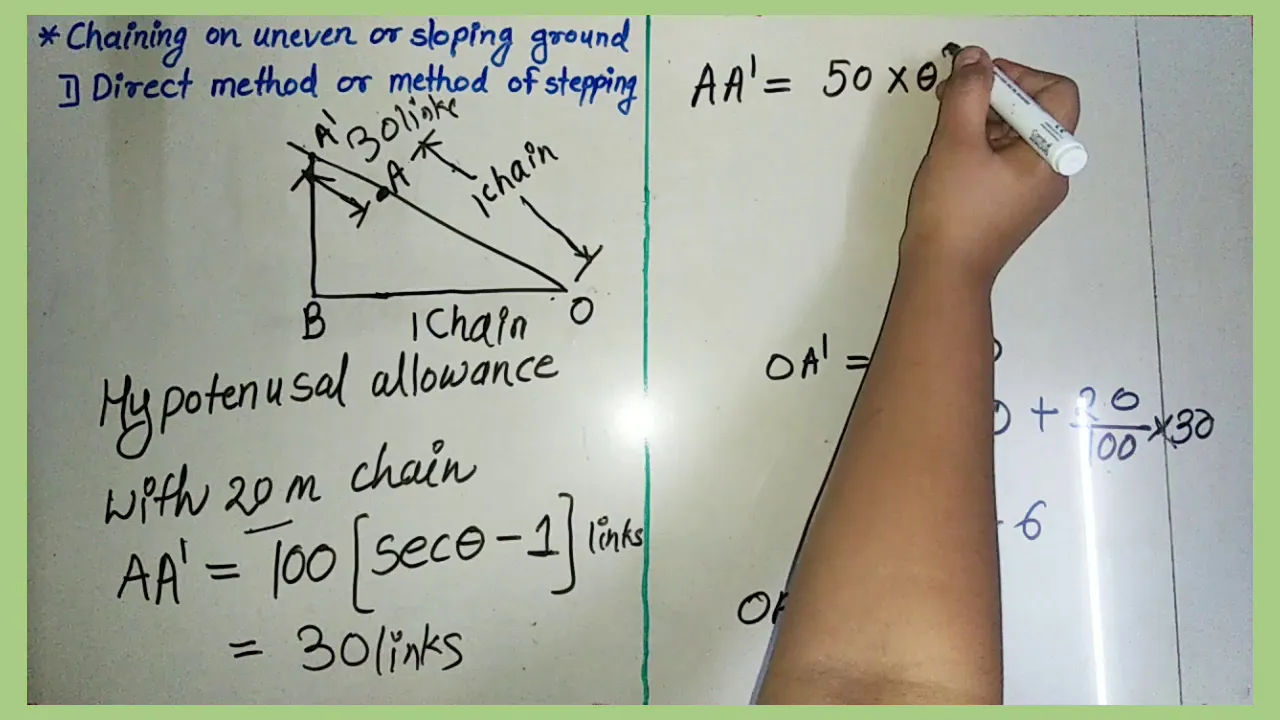 * Chaining on uneven or sloping ground
1] Direct method or method of stepping
A' 30 links
A
1 chain
B
1 Chain
O
Hypotenusal allowance
with 20 m chain
AA' = 100 [secθ - 1] links
= 30 links
AA' = 50 × θ
OA' =
+ 20/100 × 30
6